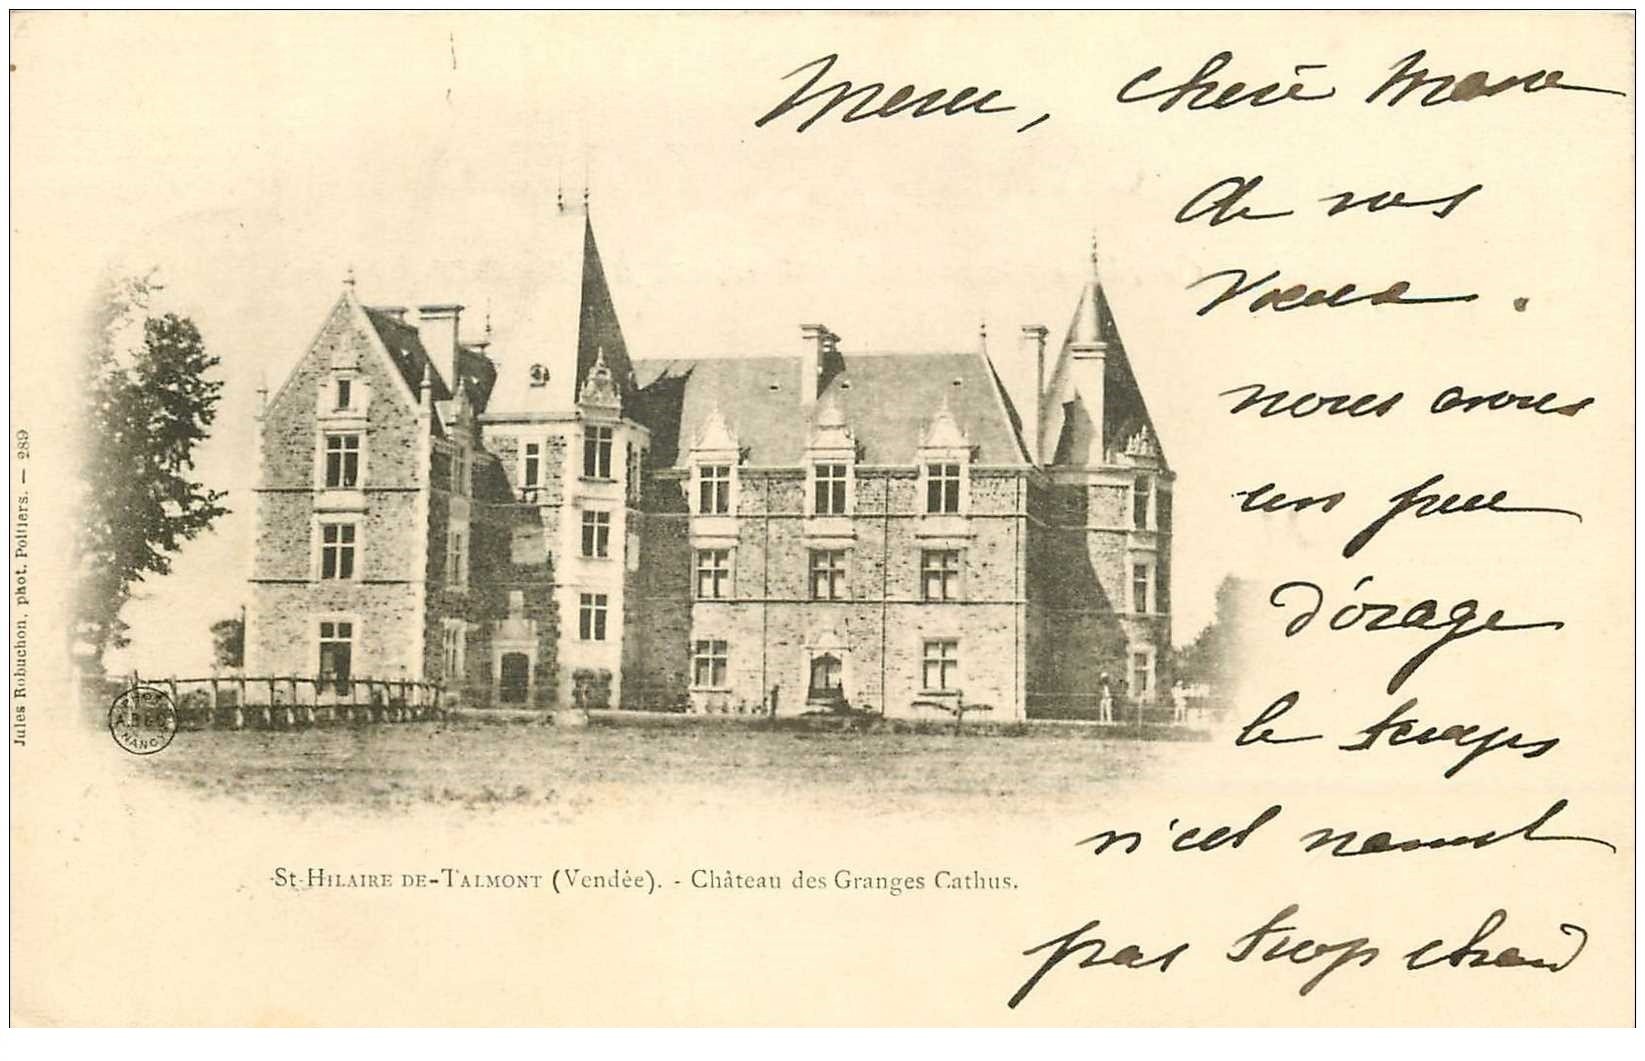 Merci, chère Marie
de vos
vœux.
nous avons
un peu
d'orage
le temps
n'est
pas trop chaud
St-HILAIRE DE-TALMONT (Vendée). - Château des Granges Cathus.
Jules Robuchon, phot. Poitiers. — 289
NANCY